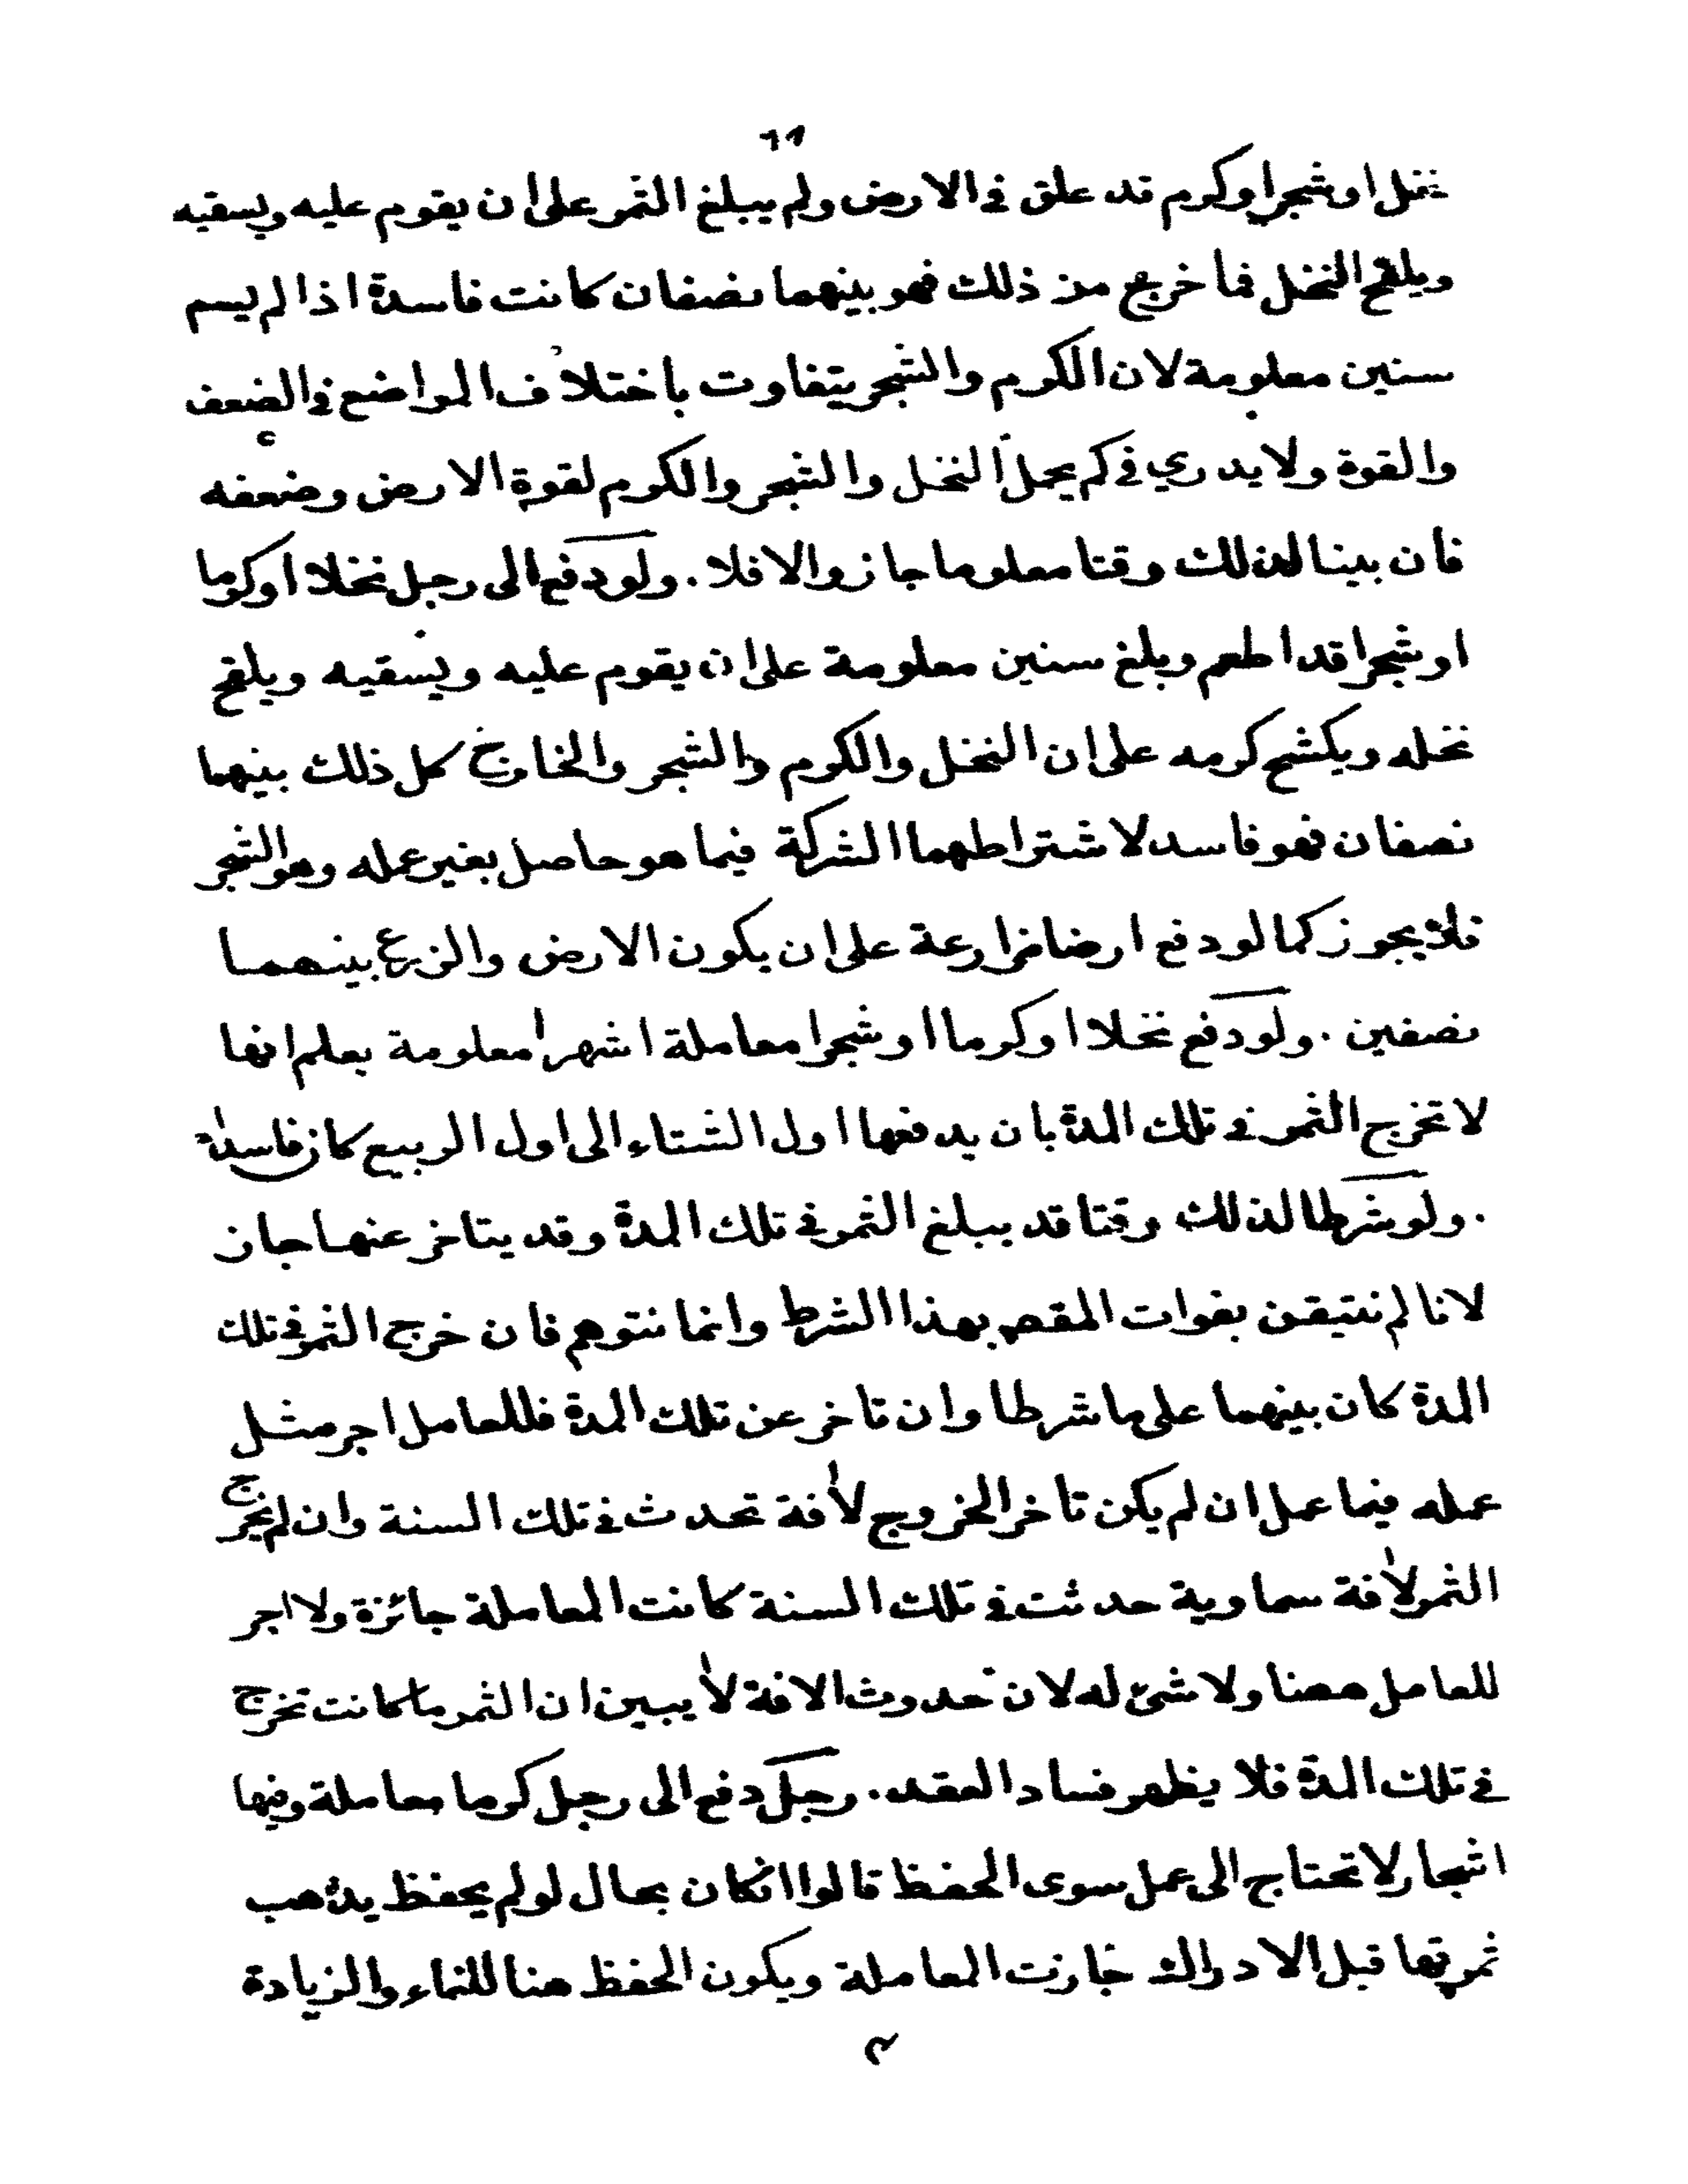 نخل او شجر اوكرم قد علق في الارض ولم يبلغ الثمر على ان يقوم عليه ويسقيه
ويلقح النخل فما خرج من ذلك فهو بينهما نصفان كانت فاسدة اذا لم يسم
سنين معلومة لان الكرم والشجر يتفاوت باختلاف المواضع في الضعف
والقوة ولا يدري في كم يحمل النخل والشجر والكرم لقوة الارض وضعفه
فان بينا لذلك وقتا معلوما جاز والا فلا . ولو دفع الى رجل نخلا اوكرما
او شجرا قد اطعم وبلغ سنين معلومة على ان يقوم عليه ويسقيه ويلقح
نخله ويكشح كرمه على ان النخل والكرم والشجر والخارج كل ذلك بينهما
نصفان فهو فاسد لاشتراطهما الشركة فيما هو حاصل بغير عمله وهو الشجر
فلا يجوز كما لو دفع ارضا مزارعة على ان يكون الارض والزرع بينهما
نصفين . ولو دفع نخلا اوكرما او شجرا معاملة اشهرا معلومة يعلم انها
لا تخرج الثمر في تلك المدة بان يدفعها اول الشتاء الى اول الربيع كان فاسدة
. ولو شرطا لذلك وقتا قد يبلغ الثمر في تلك المدة وقد يتاخر عنها جاز
لانا لم نتيقن بفوات المقصـ بهذا الشرط وانما نتوهم فان خرج الثمر في تلك
المدة كان بينهما على ما شرطا وان تاخر عن تلك المدة فللعامل اجر مثل
عمله فيما عمل ان لم يكن تاخر الخروج لآفة تحدث في تلك السنة وان لم يخرج
الثمر لآفة سماوية حدثت في تلك السنة كانت المعاملة جائزة ولا اجر
للعامل ههنا ولا شئ له لان حدوث الافة لا يبين ان الثمر ما كانت تخرج
في تلك المدة فلا يظهر فساد العقد . رجل دفع الى رجل كرما معاملة وفيها
اشجار لا تحتاج الى عمل سوى الحفظ قالوا انكان بحال لو لم يحفظ يذهب
ثمرتها قبل الادراك جازت المعاملة ويكون الحفظ هنا للنماء والزيادة